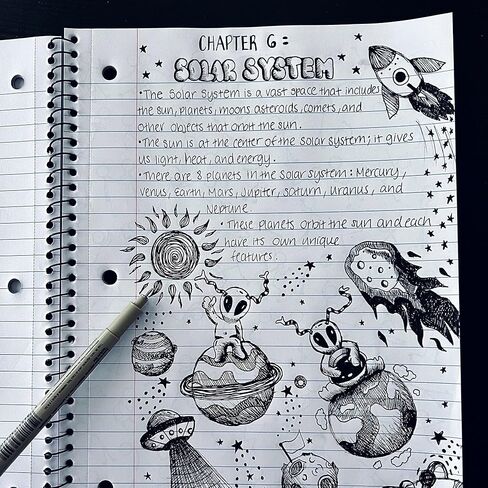 CHAPTER 6:
SOLAR SYSTEM
• The Solar System is a vast space that includes
the sun, planets, moons asteroids, comets, and
other objects that orbit the sun.
• The sun is at the center of the solar system; it gives
us light, heat, and energy.
• There are 8 planets in the solar system: Mercury,
Venus, Earth, Mars, Jupiter, Saturn, Uranus, and
Neptune.
• These planets orbit the sun and each
have its own unique
features.